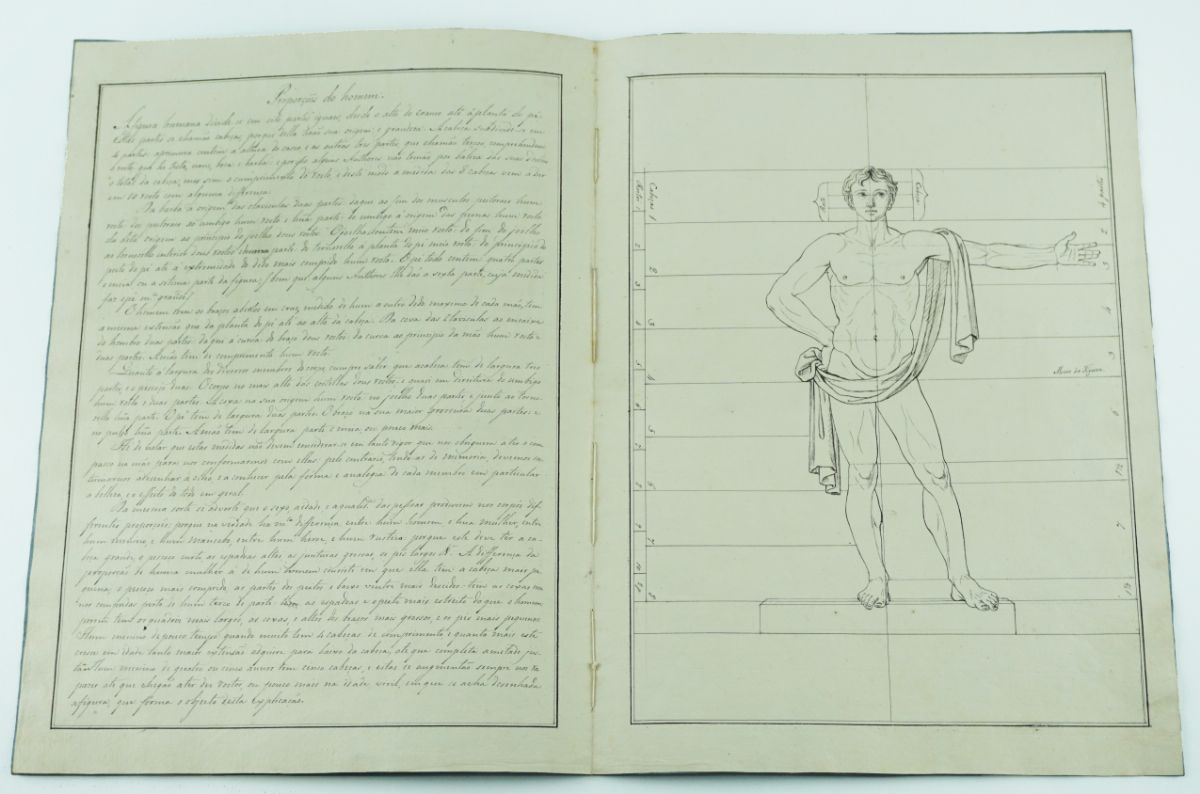 Proporções do homem.
A figura humana divide-se em oito partes iguaes, desde o alto do craneo até á planta do pé.
Estas partes se chamão cabeças, porque della tirão sua origem e grandeza. A cabeça subdivide-se em
4 partes: a primeira contem a altura do casco, e as outras tres partes, que chamão terços, comprehendem
o rosto que he testa, nariz, boca e barba: e porq̃ alguns Authores não tomão por
o total da cabeça, mas sim o comprimento do rosto, e deste modo a medida das 8 cabeças vem a ser
em 10 rostos com alguma differença.
Da barba á origem das claviculas duas partes: daqui ao fim dos musculos peitoraes hum
rosto: dos peitoraes ao umbigo hum rosto e hũa parte: do umbigo á origem das pernas hum rosto
da dita origem ao principio do joelho dous rostos. O joelho contem meio rosto: do fim do joelho
ao tornozello inferior dous rostos parte: do tornozello á planta do pé meio rosto: do principio do
peito do pé até a extremidade do dedo mais comprido hum rosto. O pé todo contem quatro partes
e meia ou a setima parte da figura; (bem que alguns Authores lhe dão a sexta parte, cuja medida
faz o pé m.to grande.)
O homem com os braços abertos em cruz, medido de hum a outro dedo maximo de cada mão, tem
a mesma extensão que da planta do pé até ao alto da cabeça. Da cova das claviculas ao encaixe
do hombro duas partes: daqui a curva do braço dous rostos: da curva ao principio da mão hum rosto e
duas partes. A mão tem de comprimento hum rosto.
Quanto á largura dos diversos membros do corpo cumpre saber, que a cabeça tem de largura tres
partes, e o pescoço duas. O corpo no mais alto das costellas dous rostos: e quasi em direitura do umbigo
hum rosto e duas partes. A coxa na sua origem hum rosto: no joelho duas partes: e junto ao torno-
zello hũa parte. O pé tem de largura duas partes. O braço na sua maior grossura duas partes: e
no pulso hũa parte. A mão tem de largura parte e meia, ou pouco mais.
He de notar que estas medidas não devem considerar-se em tanto rigor, que nos obriguem a ter o com-
passo na mão para nos conformarmos com ellas; pelo contrario, tendo-as de memoria, devemos cos-
tumarmos a desenhar a olho, e a conhecer pela forma e analogia de cada membro em particular
a belleza, e o effeito do todo em geral.
Da mesma sorte se adverte que o sexo, a idade e a qualid.e das pessoas produzem nos corpos dif-
ferentes proporções; porque na verdade ha m.ta differença entre hum homem e hũa mulher, entre
hum menino e hum mancebo, entre hum heroe, e hum rustico: porque este deve ter a ca-
beça grande, o pescoço curto, as espadoas altas, as junturas grossas, os pés largos &. A differença da
proporção de huma mulher á de hum homem consiste em que ella tem a cabeça mais pe-
quena, o pescoço mais comprido, as partes dos peitos e baixo ventre mais descidos: tem as coxas me-
nos compridas perto de hum terço de parte: tem as espadoas e o peito mais estreito do que o homem:
porem tem os quadris mais largos, as coxas, e altos dos braços mais grossos, e os pés mais pequenos.
Hum menino de pouco tempo, quando muito tem 4 cabeças de comprimento: e quanto mais este
cresce em idade tanto maior extensão adquire para baixo da cabeça, até que completa a metade jus-
ta. Hum menino de quatro ou cinco annos tem cinco cabeças, e estas se augmentão sempre nos ra-
pazes até que chegão a ter dez rostos, ou pouco mais na idade viril, em que se acha desenhada
a figura, que forma o objecto desta explicação.
Rosto
Cabeças 1
4 partes
Meio da Figura